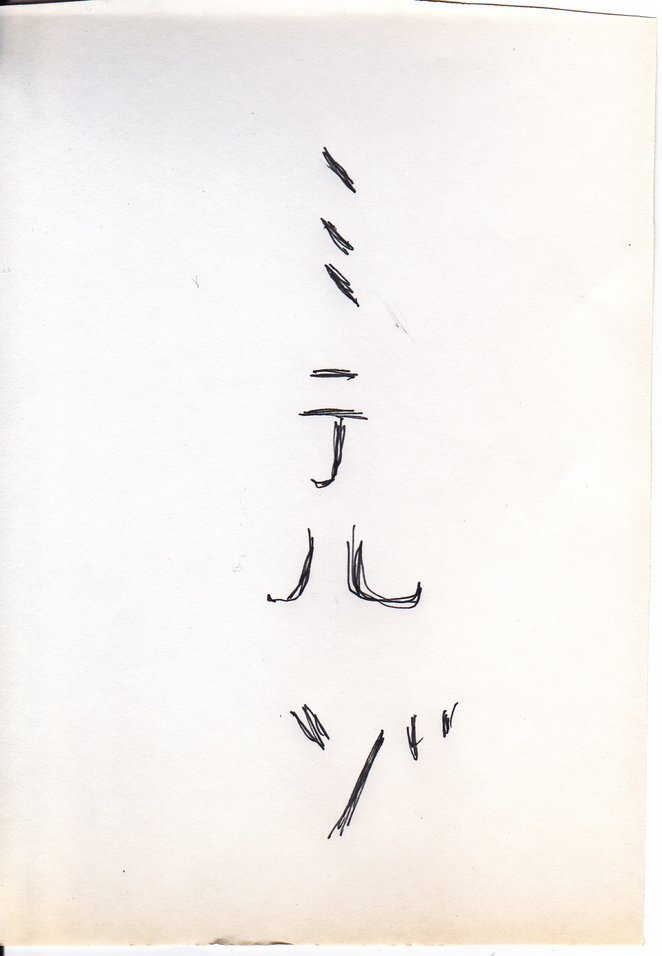 ミテルゾ